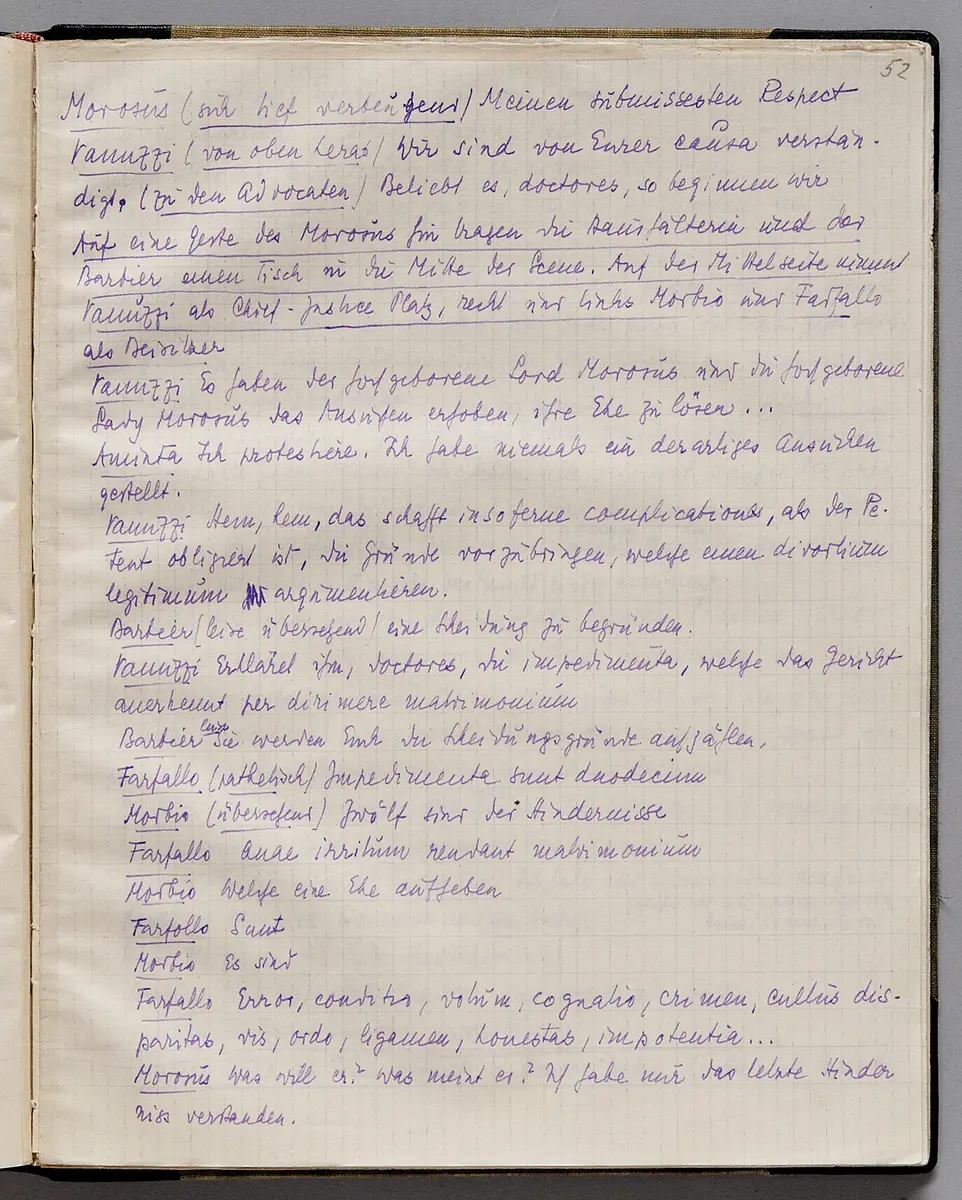 52
Morosus (sich tief verbeugend) Meinen submissesten Respect
Vanuzzi (von oben herab) Wir sind von Eurer causa verstän-
digt. (Zu den Advocaten) Beliebt es, doctores, so beginnen wir
Auf eine Geste des Morosus hin tragen die Haushälterin und der
Barbier einen Tisch in die Mitte der Scene. Auf der Mittelseite nimmt
Vanuzzi als Chief-Justice Platz, recht und links Morbio und Farfallo
als Beisitzer
Vanuzzi Es haben der hochgeborene Lord Morosus und die hochgeborene
Lady Morosus das Ansuchen erhoben, ihre Ehe zu lösen ...
Aminta Ich protestiere. Ich habe niemals ein derartiges Ansuchen
gestellt.
Vanuzzi Hem, hem, das schafft insoferne complications, als der Pe-
tent obligiert ist, die Gründe vorzubringen, welche einen divortium
legitimum argumentieren.
Barbier (leise übersetzend) eine Scheidung zu begründen.
Vanuzzi Erkläret ihm, doctores, die impedimenta, welche das Gericht
anerkennt per dirimere matrimonium
Barbier leise Sie werden Euch die Scheidungsgründe aufzählen.
Farfallo (pathetisch) Impedimenta sunt duodecim
Morbio (übersetzend) Zwölf sind der Hindernisse
Farfallo Quae irritum rendant matrimonium
Morbio Welche eine Ehe aufheben
Farfallo Sunt
Morbio Es sind
Farfallo Error, conditio, votum, cognatio, crimen, cultus dis-
paritas, vis, ordo, ligamen, honestas, impotentia...
Morosus Was will er? Was meint er? Ich habe nur das letzte Hinder
niss verstanden.